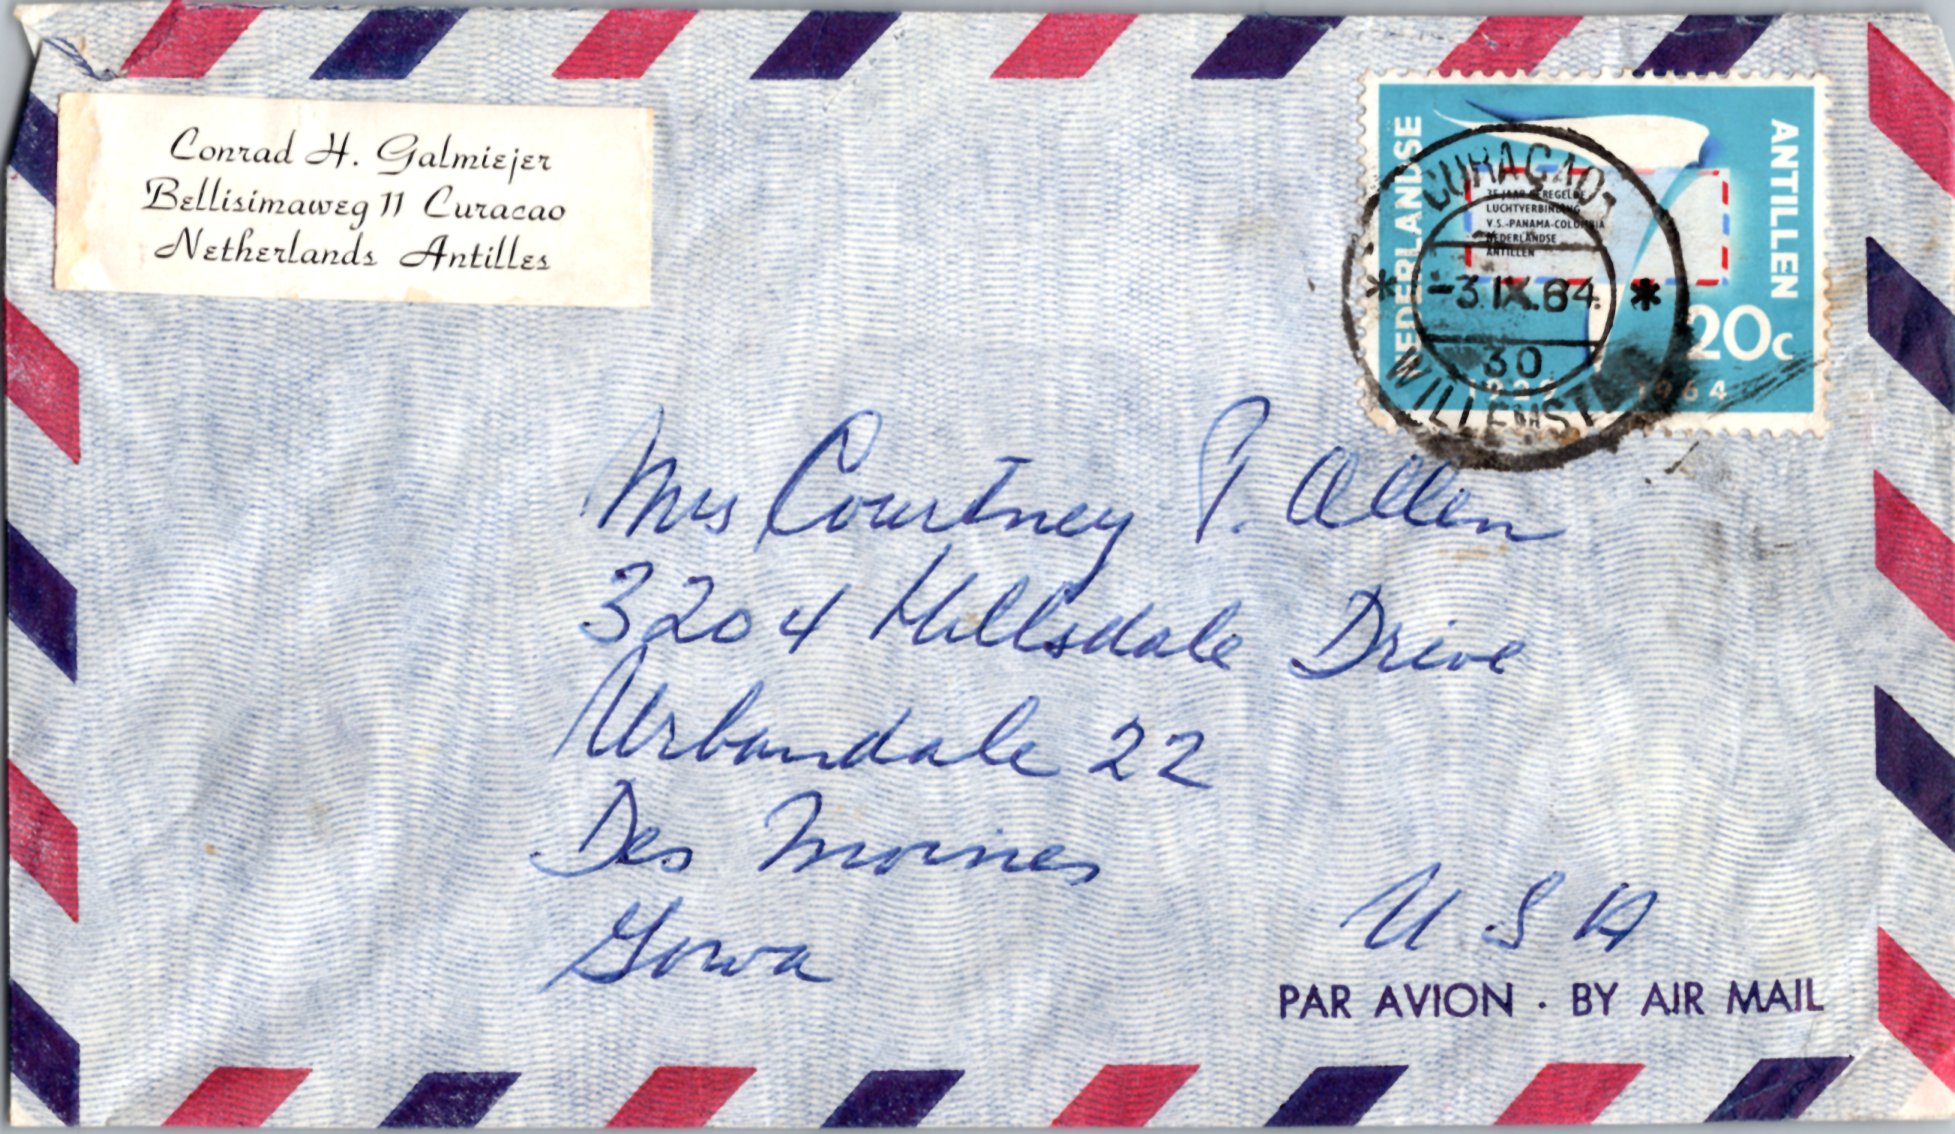 Conrad H. Galmiejer
Bellisimaweg 11 Curacao
Netherlands Antilles
NEDERLANDSE
ANTILLEN
25 JAAR GEREGELDE
LUCHTVERBINDING
V.S.-PANAMA-COLOMBIA
NEDERLANDSE
ANTILLEN
20c
1939 1964
CURAÇAO
-3.IX.64.
30
WILLEMSTAD
Mrs Courtney P. Allen
3204 Hillsdale Drive
Urbandale 22
Des Moines
Iowa
U S A
PAR AVION · BY AIR MAIL